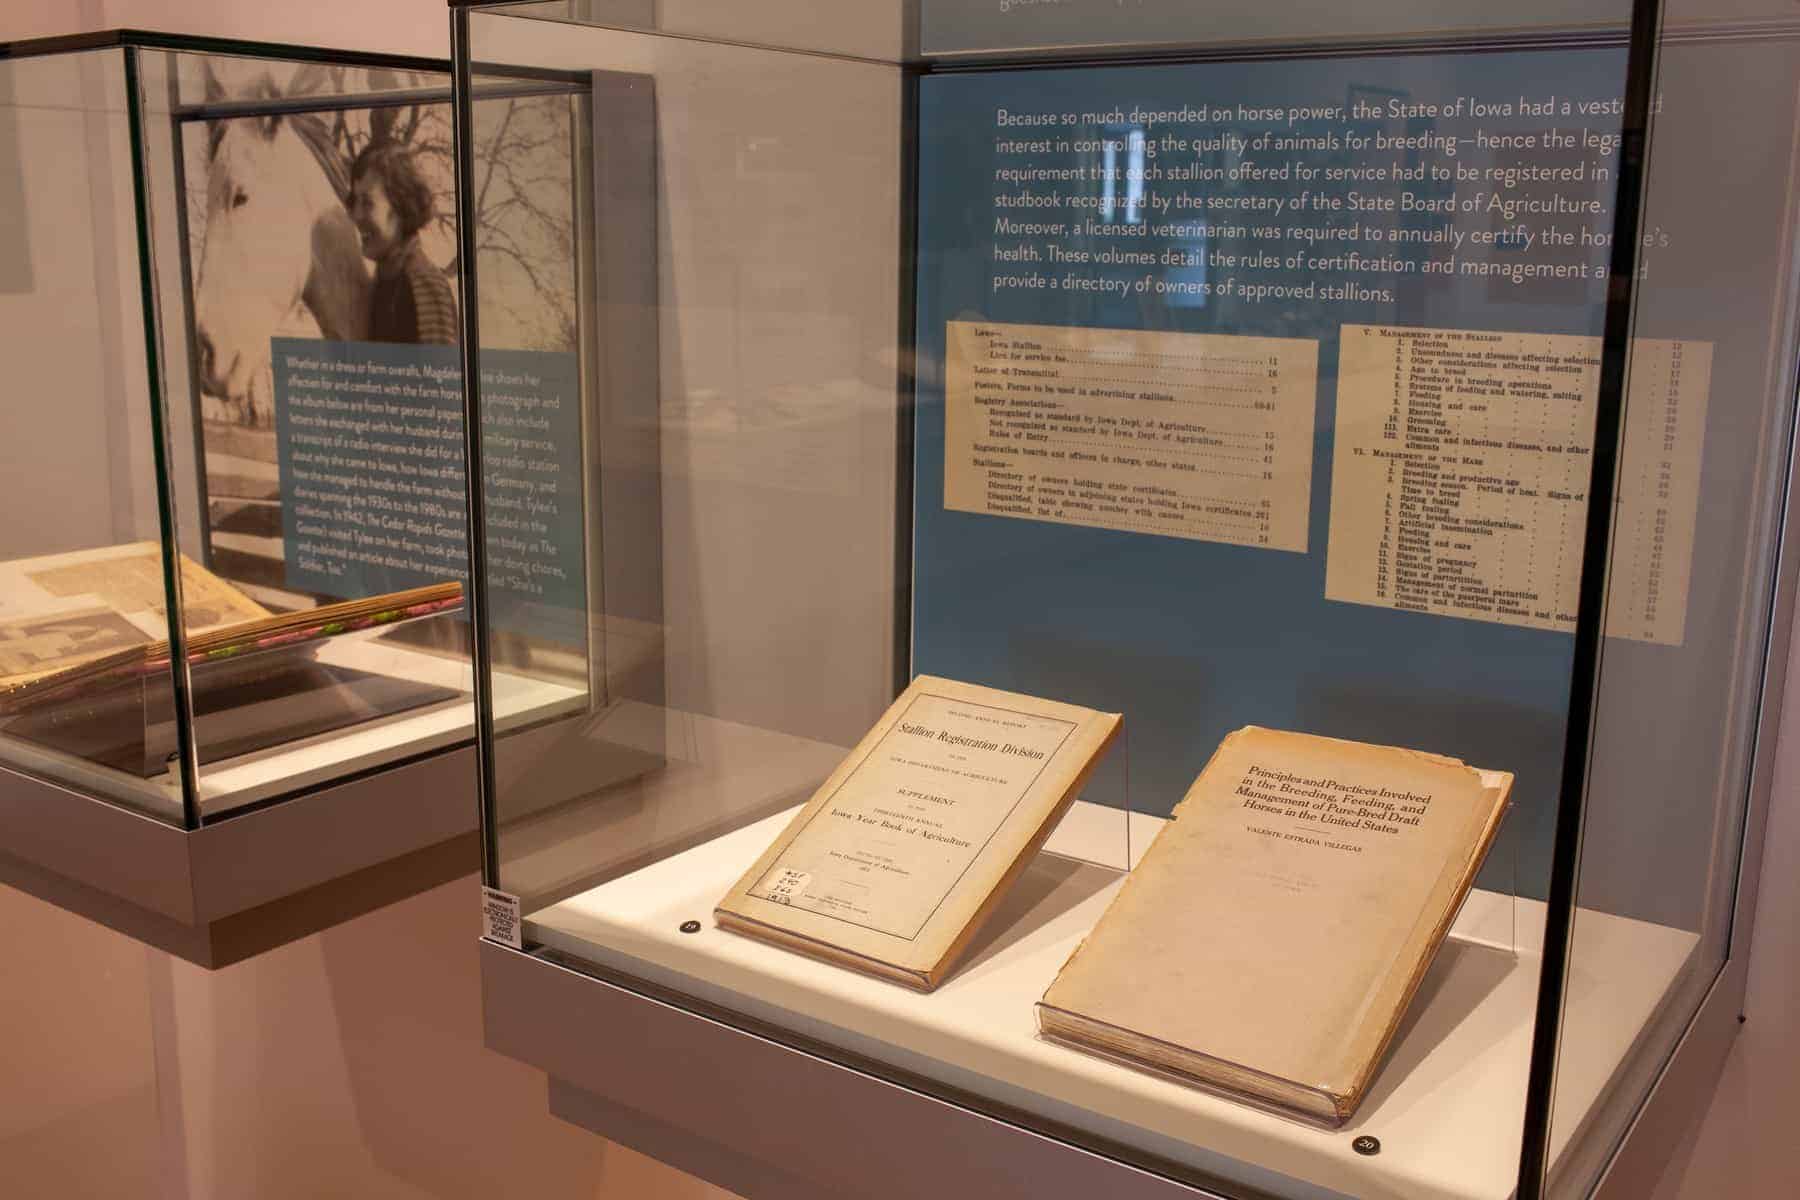 Because so much depended on horse power, the State of Iowa had a vested
interest in controlling the quality of animals for breeding—hence the legal
requirement that each stallion offered for service had to be registered in a
studbook recognized by the secretary of the State Board of Agriculture.
Moreover, a licensed veterinarian was required to annually certify the horse's
health. These volumes detail the rules of certification and management and
provide a directory of owners of approved stallions.
Laws—
Iowa Stallion 11
Lien for service fee 16
Letter of Transmittal 5
Posters, Forms to be used in advertising stallions 60-61
Registry Associations—
Recognized as standard by Iowa Dept. of Agriculture 15
Not recognized as standard by Iowa Dept. of Agriculture 16
Rules of Entry 41
Registration boards and officers in charge, other states 16
Stallions—
Directory of owners holding state certificates 65
Directory of owners in adjoining states holding Iowa certificates 261
Disqualified, table showing number with causes 14
Disqualified, list of 34
V. Management of the Stallion
1. Selection
2. Unsoundness and diseases affecting selection
3. Other considerations affecting selection
4. Age to breed
5. Procedure in breeding operations
6. Systems of feeding and watering, salting
7. Feeding
8. Housing and care
9. Exercise
10. Grooming
111. Extra care
122. Common and infectious diseases, and other
ailments
VI. Management of the Mare
1. Selection
2. Breeding and productive age
3. Breeding season. Period of heat. Signs of
Time to breed
4. Spring foaling
5. Fall foaling
6. Other breeding considerations
7. Artificial insemination
8. Feeding
9. Housing and care
10. Exercise
11. Signs of pregnancy
12. Gestation period
13. Signs of parturition
14. Management of normal parturition
15. The care of the puerperal mare
16. Common and infectious diseases and other
ailments
Whether in a dress or farm overalls, Magdalen shows her
affection for and comfort with the farm horse photograph and
the album below are from her personal papers which also include
letters she exchanged with her husband during military service,
a transcript of a radio interview she did for a radio station
about why she came to Iowa, how Iowa differ Germany, and
how she managed to handle the farm without husband. Tylee's
diaries spanning the 1930s to the 1980s are included in the
collection. In 1942, The Cedar Rapids Gazette today as The
Gazette) visited Tylee on her farm, took photo her doing chores,
and published an article about her experience titled "She's a
Soldier, Too."
SECOND ANNUAL REPORT
Stallion Registration Division
OF THE
IOWA DEPARTMENT OF AGRICULTURE
SUPPLEMENT
TO THE
THIRTEENTH ANNUAL
Iowa Year Book of Agriculture
Iowa Department of Agriculture
Principles and Practices Involved
in the Breeding, Feeding, and
Management of Pure-Bred Draft
Horses in the United States
VALENTE ESTRADA VILLEGAS
WARNING
WINDOW IS
ELECTRONICALLY
PROTECTED
AGAINST
BREAKAGE
19
20